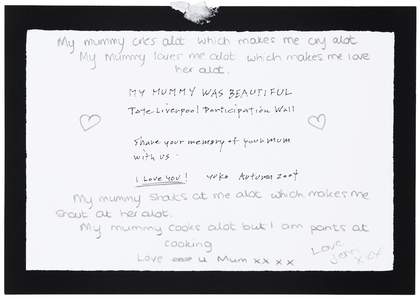 My mummy cries alot which makes me cry alot
My Mummy loves me alot which makes me love
her alot.
MY MUMMY WAS BEAUTIFUL
Tate Liverpool Participation Wall
Share your memory of your mum
with us.
I LOVE YOU! Yoko Autumn 2004
My mummy shouts at me alot which makes me
shout at her alot.
My mummy cooks alot but I am pants at
cooking
Love u Mum xxxx
Love
Jenn
xxx